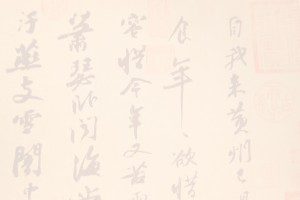 自我來黃州已
食年〻欲惜
容惜今年又苦雨
蕭瑟臥聞海
汙燕支雪闇中